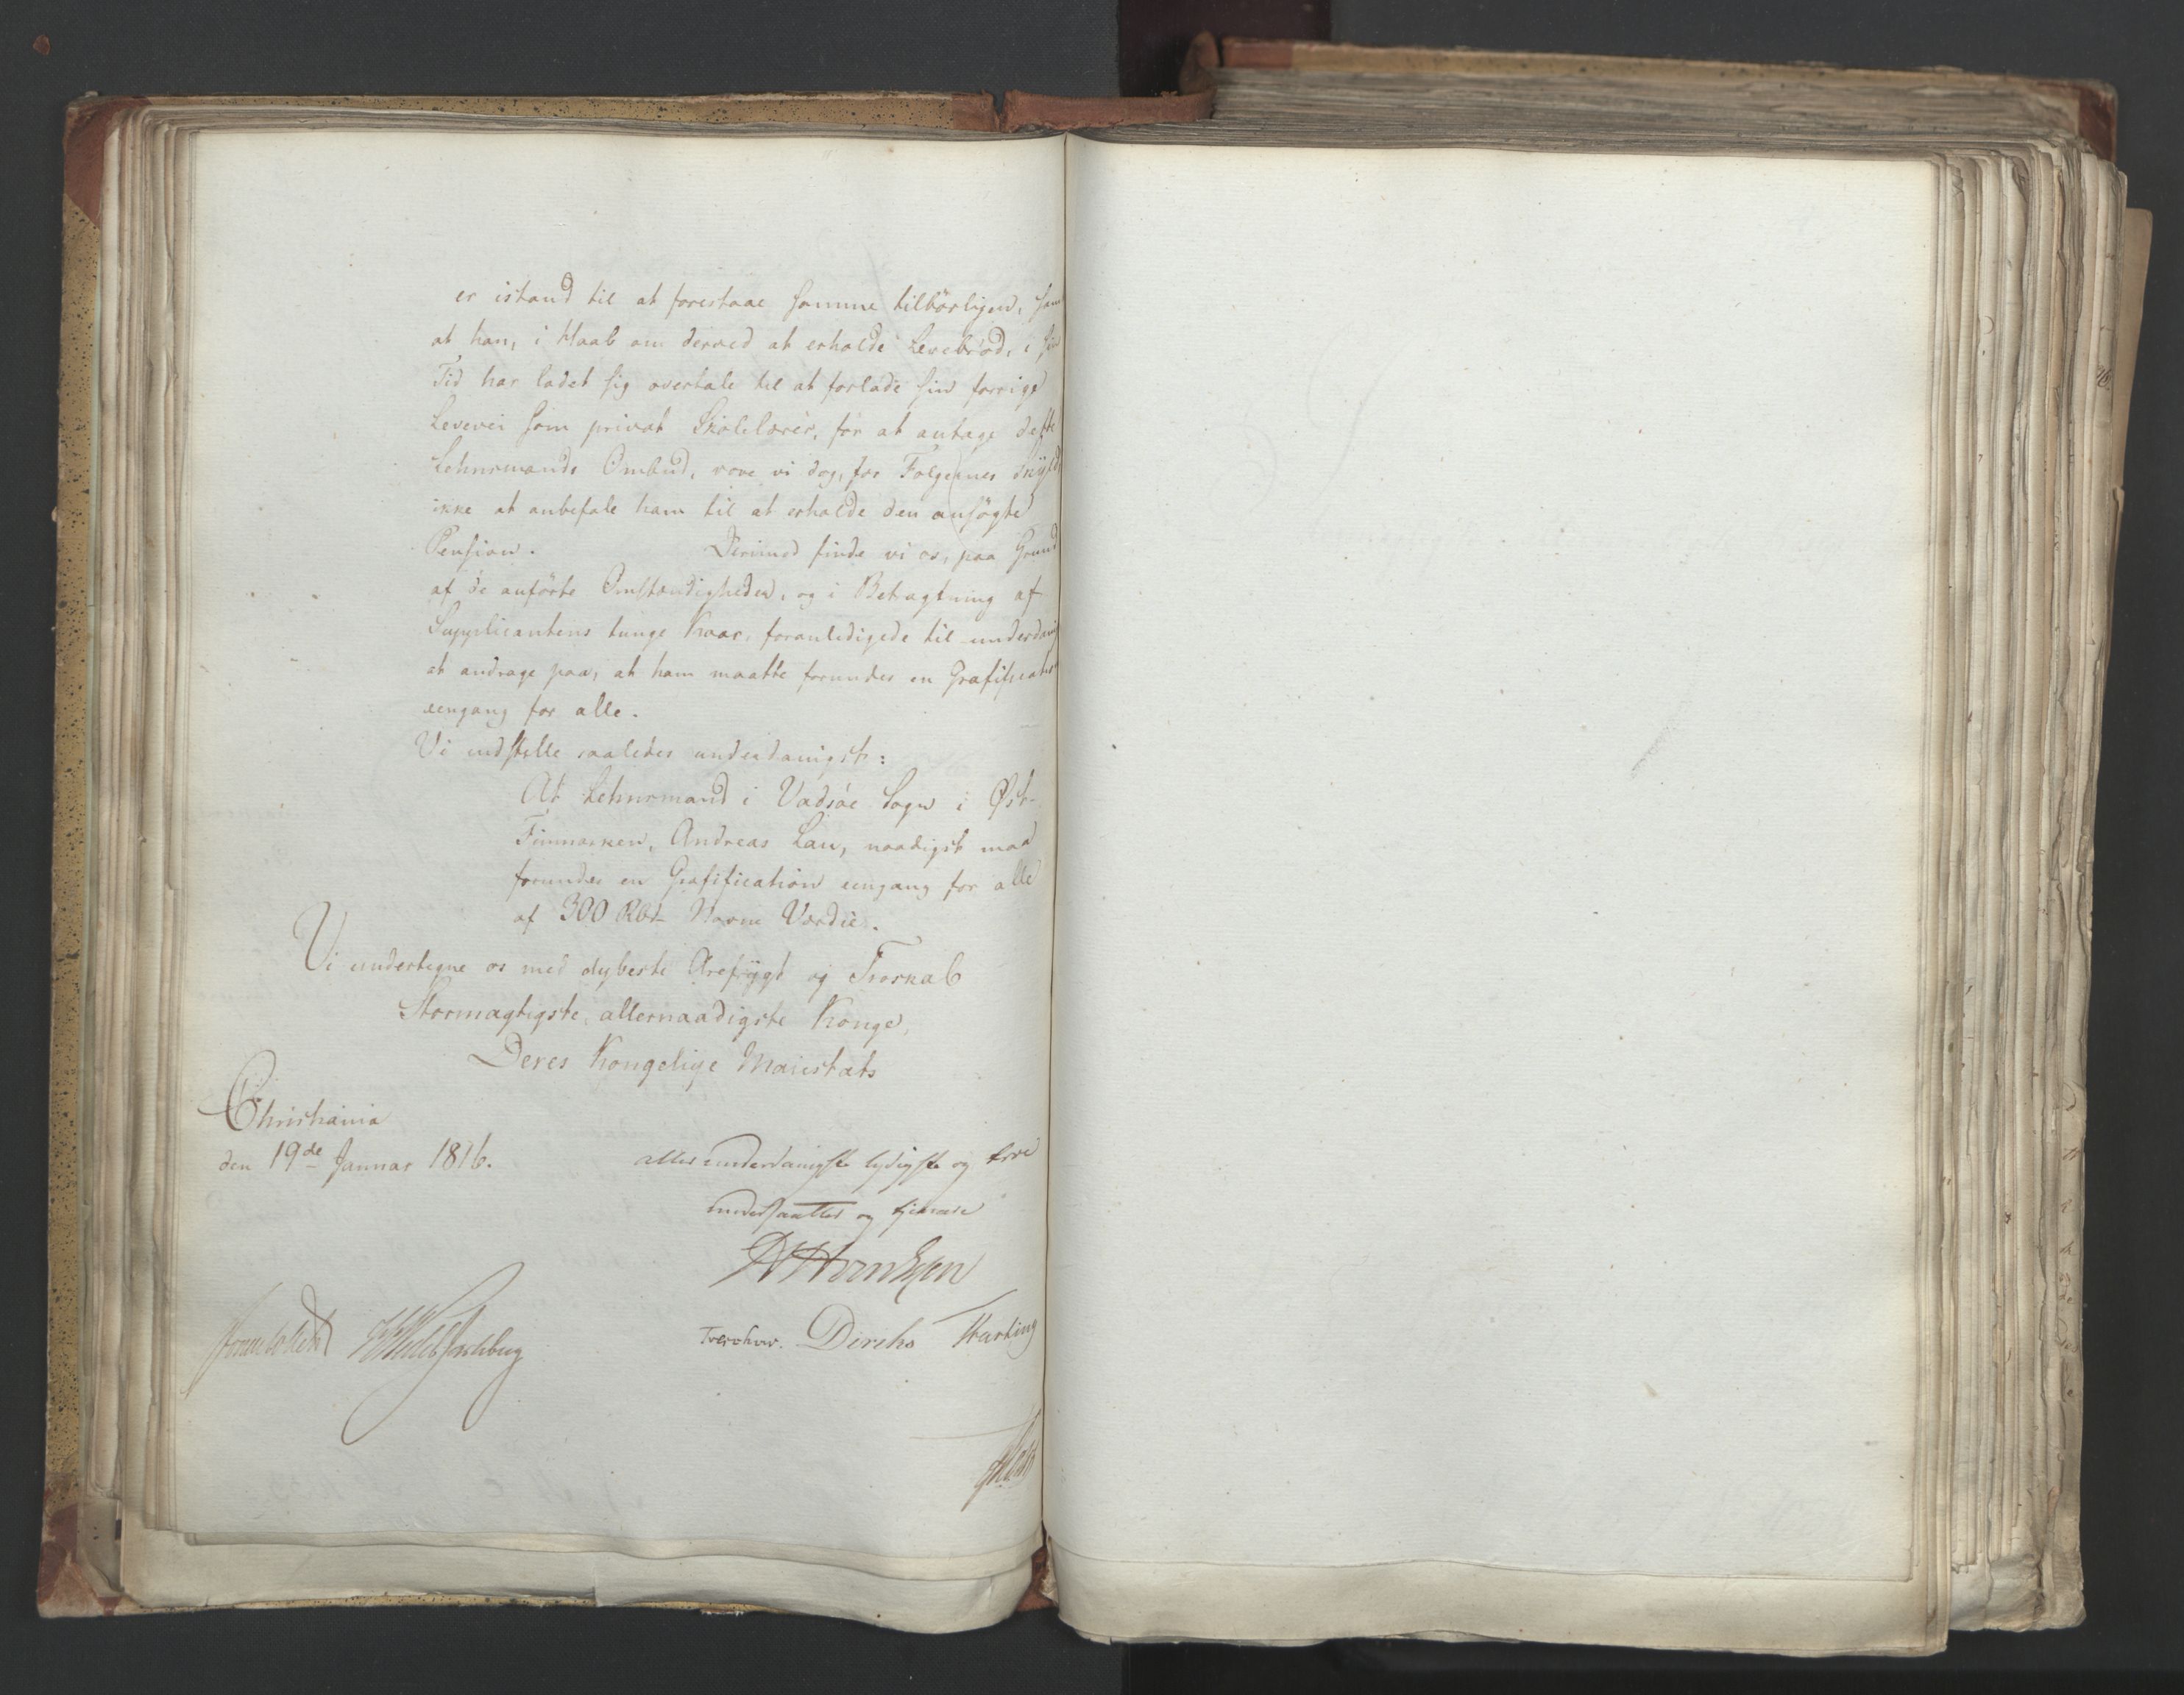 er istand til at forestaae samme tilbörligen, samt
at han, i Haab om derved at erholde Levebröd, i sin
Tid har ladet sig overtale til at forlade sin forrige
Levevei som privat Skolelærer, for at antage dette
Lehnsmands Ombud, vove vi dog, for Fölgernes Skyld
ikke at anbefale ham til at erholde den ansögte
Pension. Derimod finde vi os, paa Grund
af de anförte Omstændigheder, og i Betragtning af
Supplicantens tunge Kaar, foranledigede til underdanigst
at andrage paa, at ham maatte forundes en Gratification
eengang for alle.
Vi indstille saaledes underdanigst:
At Lehnsmand i Vadsöe Sogn i Øst-
Finmarken, Andreas Lau, naadigst maa
forundes en Gratification eengang for alle
af 300 Rbd Navne Værdie.
Vi undertegne os med dybeste Ærefrygt og Troskab
Stormægtigste, allernaadigste Konge,
Deres Kongelige Maiestæts
Christiania
den 19de Januar 1816.
allerunderdanigste lydigste og troe
undersaatter og tjenere
Sommerhielm HWedel Jarlsberg Treschow. Diriks Hartmg